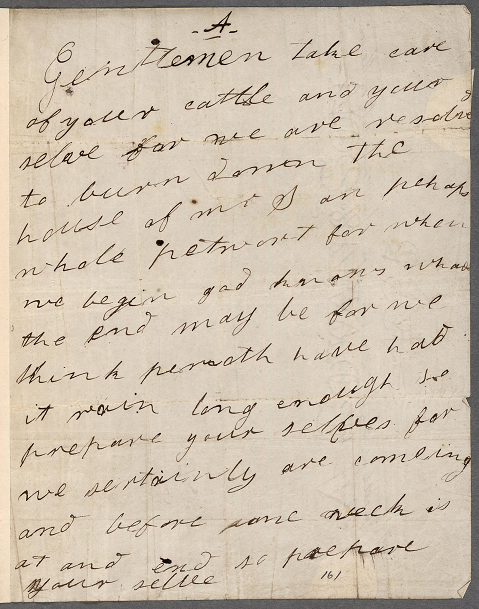 -A-
Gentlemen take care
of your cattle and your
selve for we are resolv
to burn down the
house of mr S an pehaps
whole petwort for when
we begin god knows what
the end may be for we
think peroth have had
it rain long enough so
prepare your selfes for
we sertainly are comeing
and before one week is
at and end so prepare
your selve
161